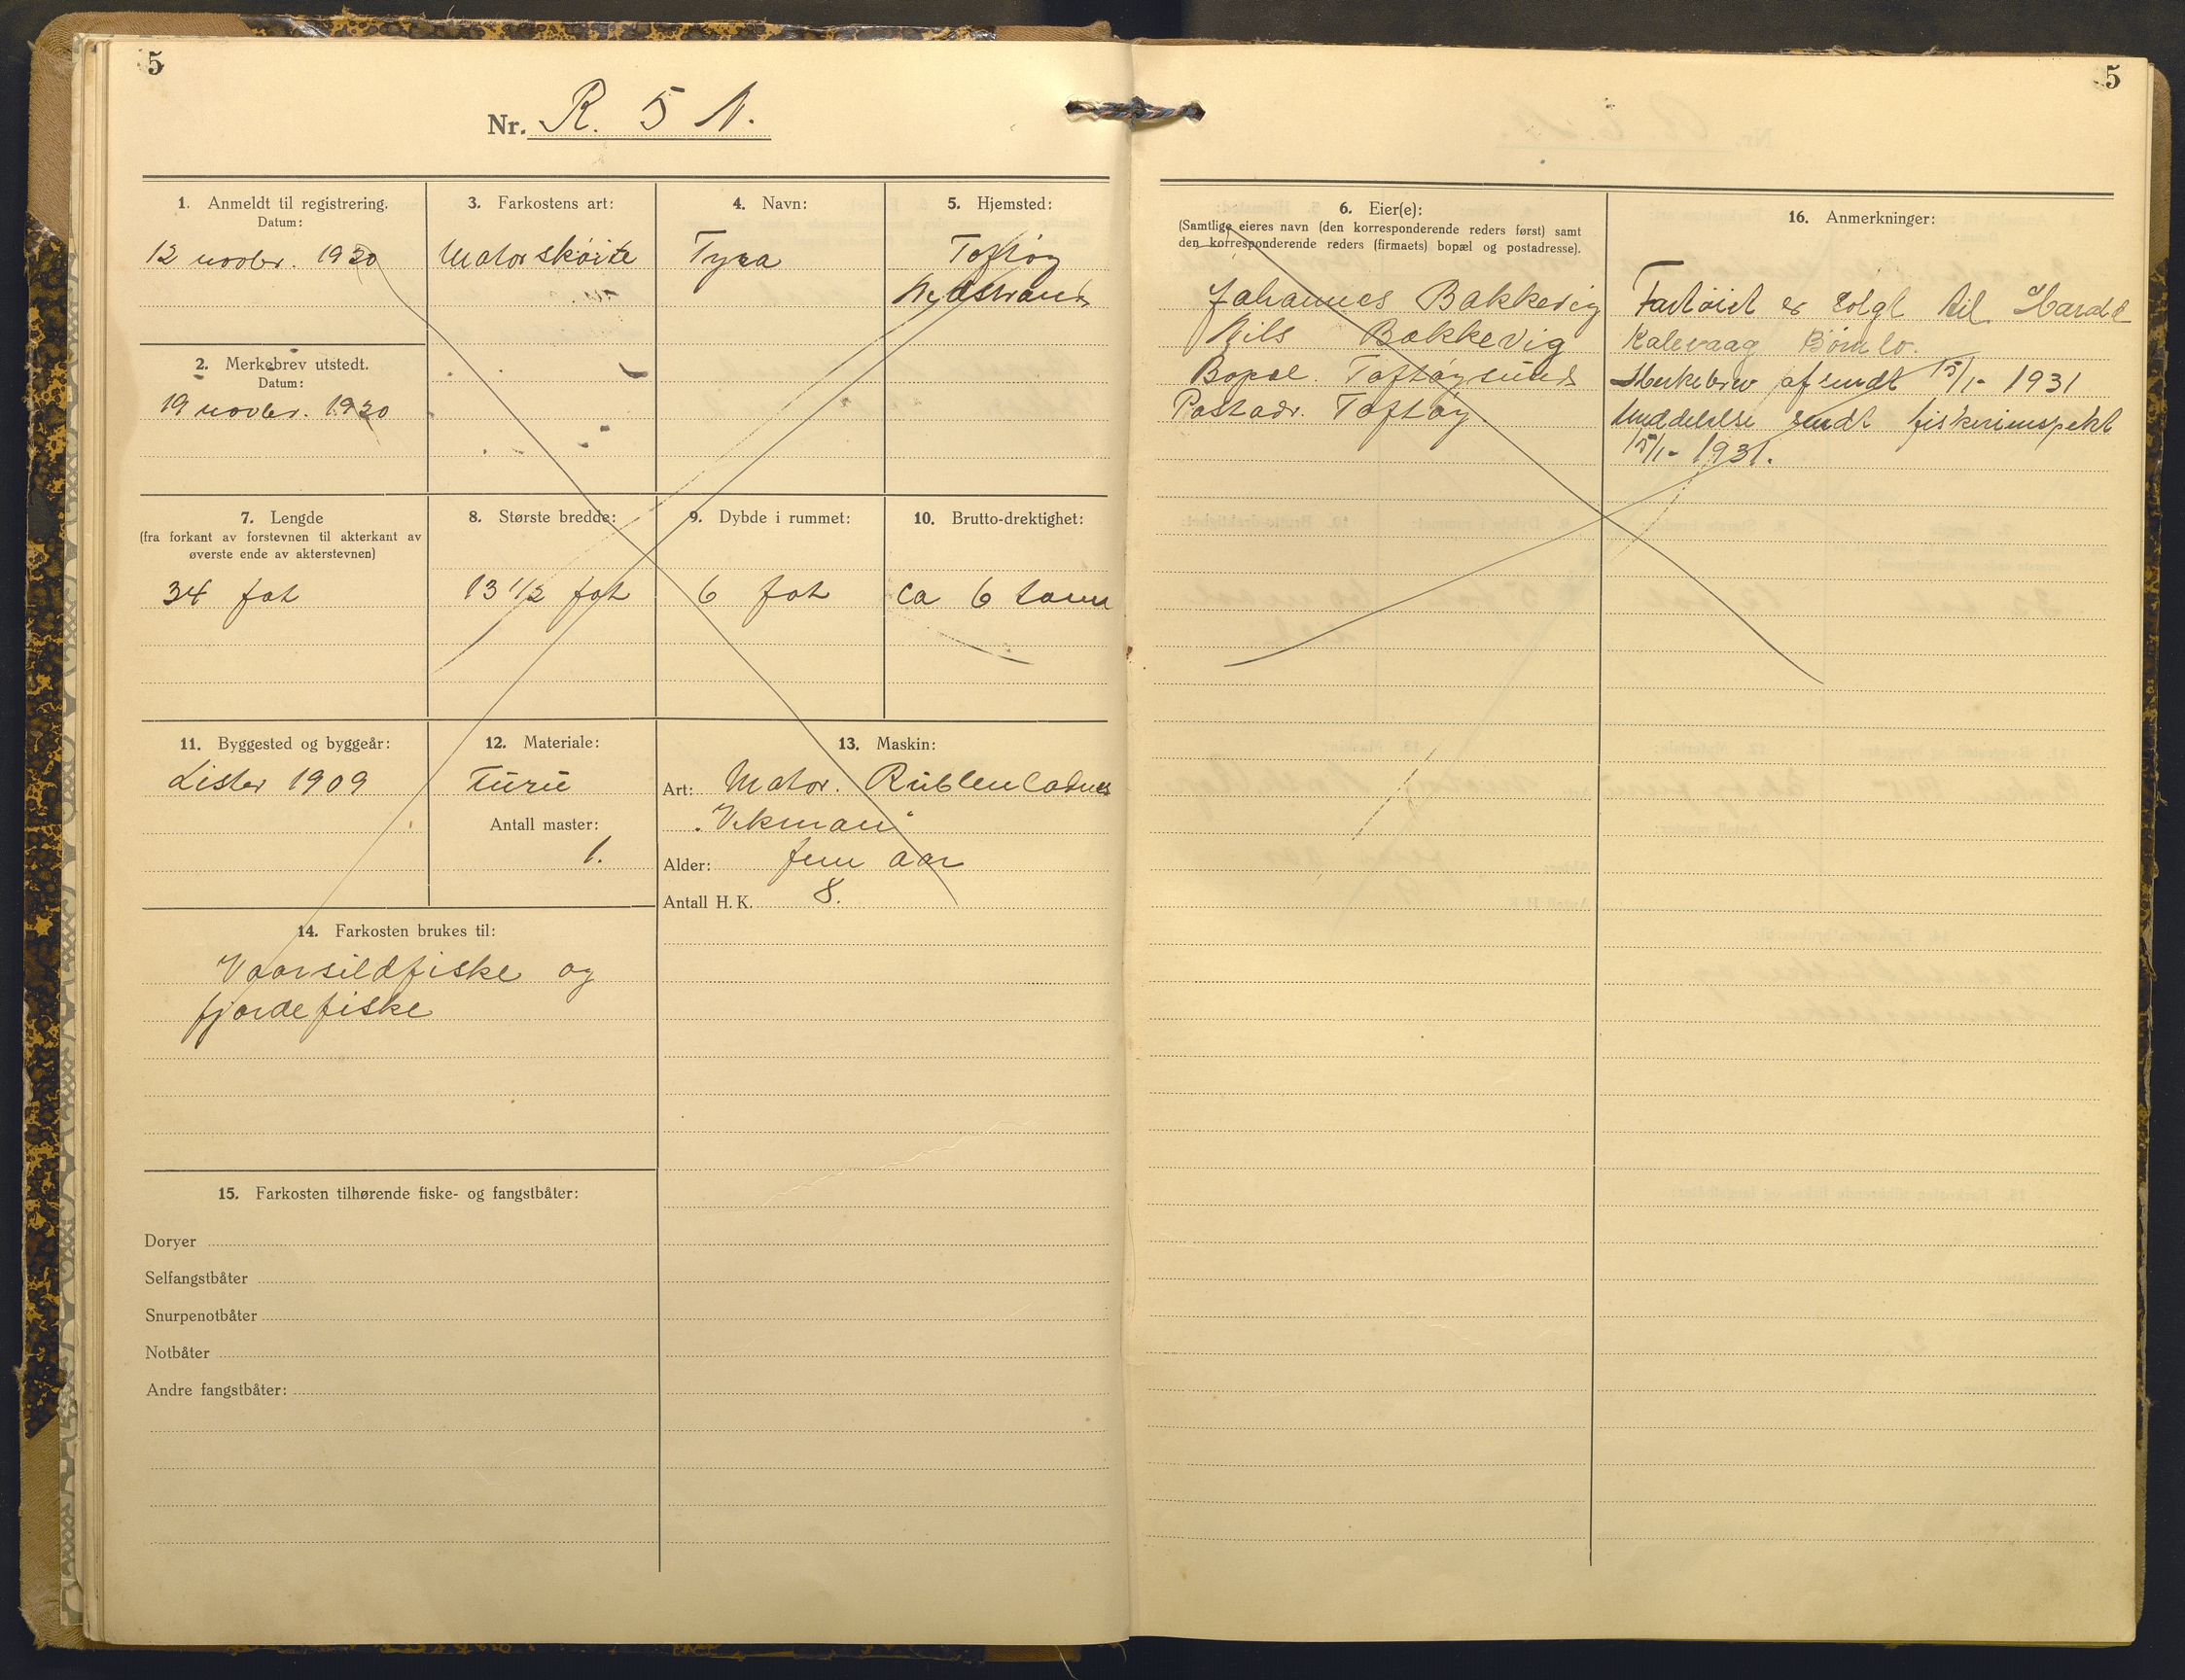 5
Nr. R. 5 N.
1. Anmeldt til registrering.
Datum:
12 novbr. 1920
2. Merkebrev utstedt.
Datum:
19 novbr. 1920
3. Farkostens art:
Motorskøite
4. Navn:
Tyra
5. Hjemsted:
Toftøy
Nedstrand
7. Lengde
(fra forkant av forstevnen til akterkant av
øverste ende av akterstevnen)
34 fot
8. Største bredde:
13 1/2 fot
9. Dybde i rummet:
6 fot
10. Brutto-drektighet:
ca 6 tonn
11. Byggested og byggeår:
Lister 1909
12. Materiale:
Furu
Antall master:
1.
13. Maskin:
Art: Motor.
Alder: fem aar
Antall H. K. 8.
14. Farkosten brukes til:
Vaarsildfiske og
fjordefiske
15. Farkosten tilhørende fiske- og fangstbåter:
Doryer
Selfangstbåter
Snurpenotbåter
Notbåter
Andre fangstbåter:
5
6. Eier(e):
(Samtlige eieres navn (den korresponderende reders først) samt
den korresponderende reders (firmaets) bopæl og postadresse).
Johannes Bakkevig
Nils Bakkevig
Bopæl. Toftøysund
Postadr. Toftøy
16. Anmerkninger:
Fartøiet er solgt til
Kalevaag Bømlo.
Merkebrev afsendt 15/1- 1931
Meddelelse sendt fiskeriinspekt
15/1- 1931.